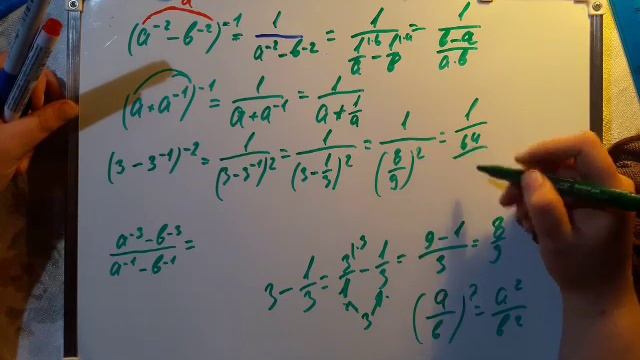 (a⁻² − b⁻²)⁻¹ = 1/(a⁻² − b⁻²) = 1/(1·b/a − 1·a/b) = 1/((b−a)/(a·b))
(a + a⁻¹)⁻¹ = 1/(a + a⁻¹) = 1/(a + 1/a)
(3 − 3⁻¹)⁻² = 1/(3−3⁻¹)² = 1/(3 − 1/3)² = 1/(8/3)² = 1/64
(a⁻³ − b⁻³)/(a⁻¹ − b⁻¹) =
3 − 1/3 = 3·3/1 − 1/3 = (9−1)/3 = 8/3
(a/b)² = a²/b²